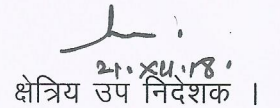 21.XII.18.
क्षेत्रिय उप निदेशक ।